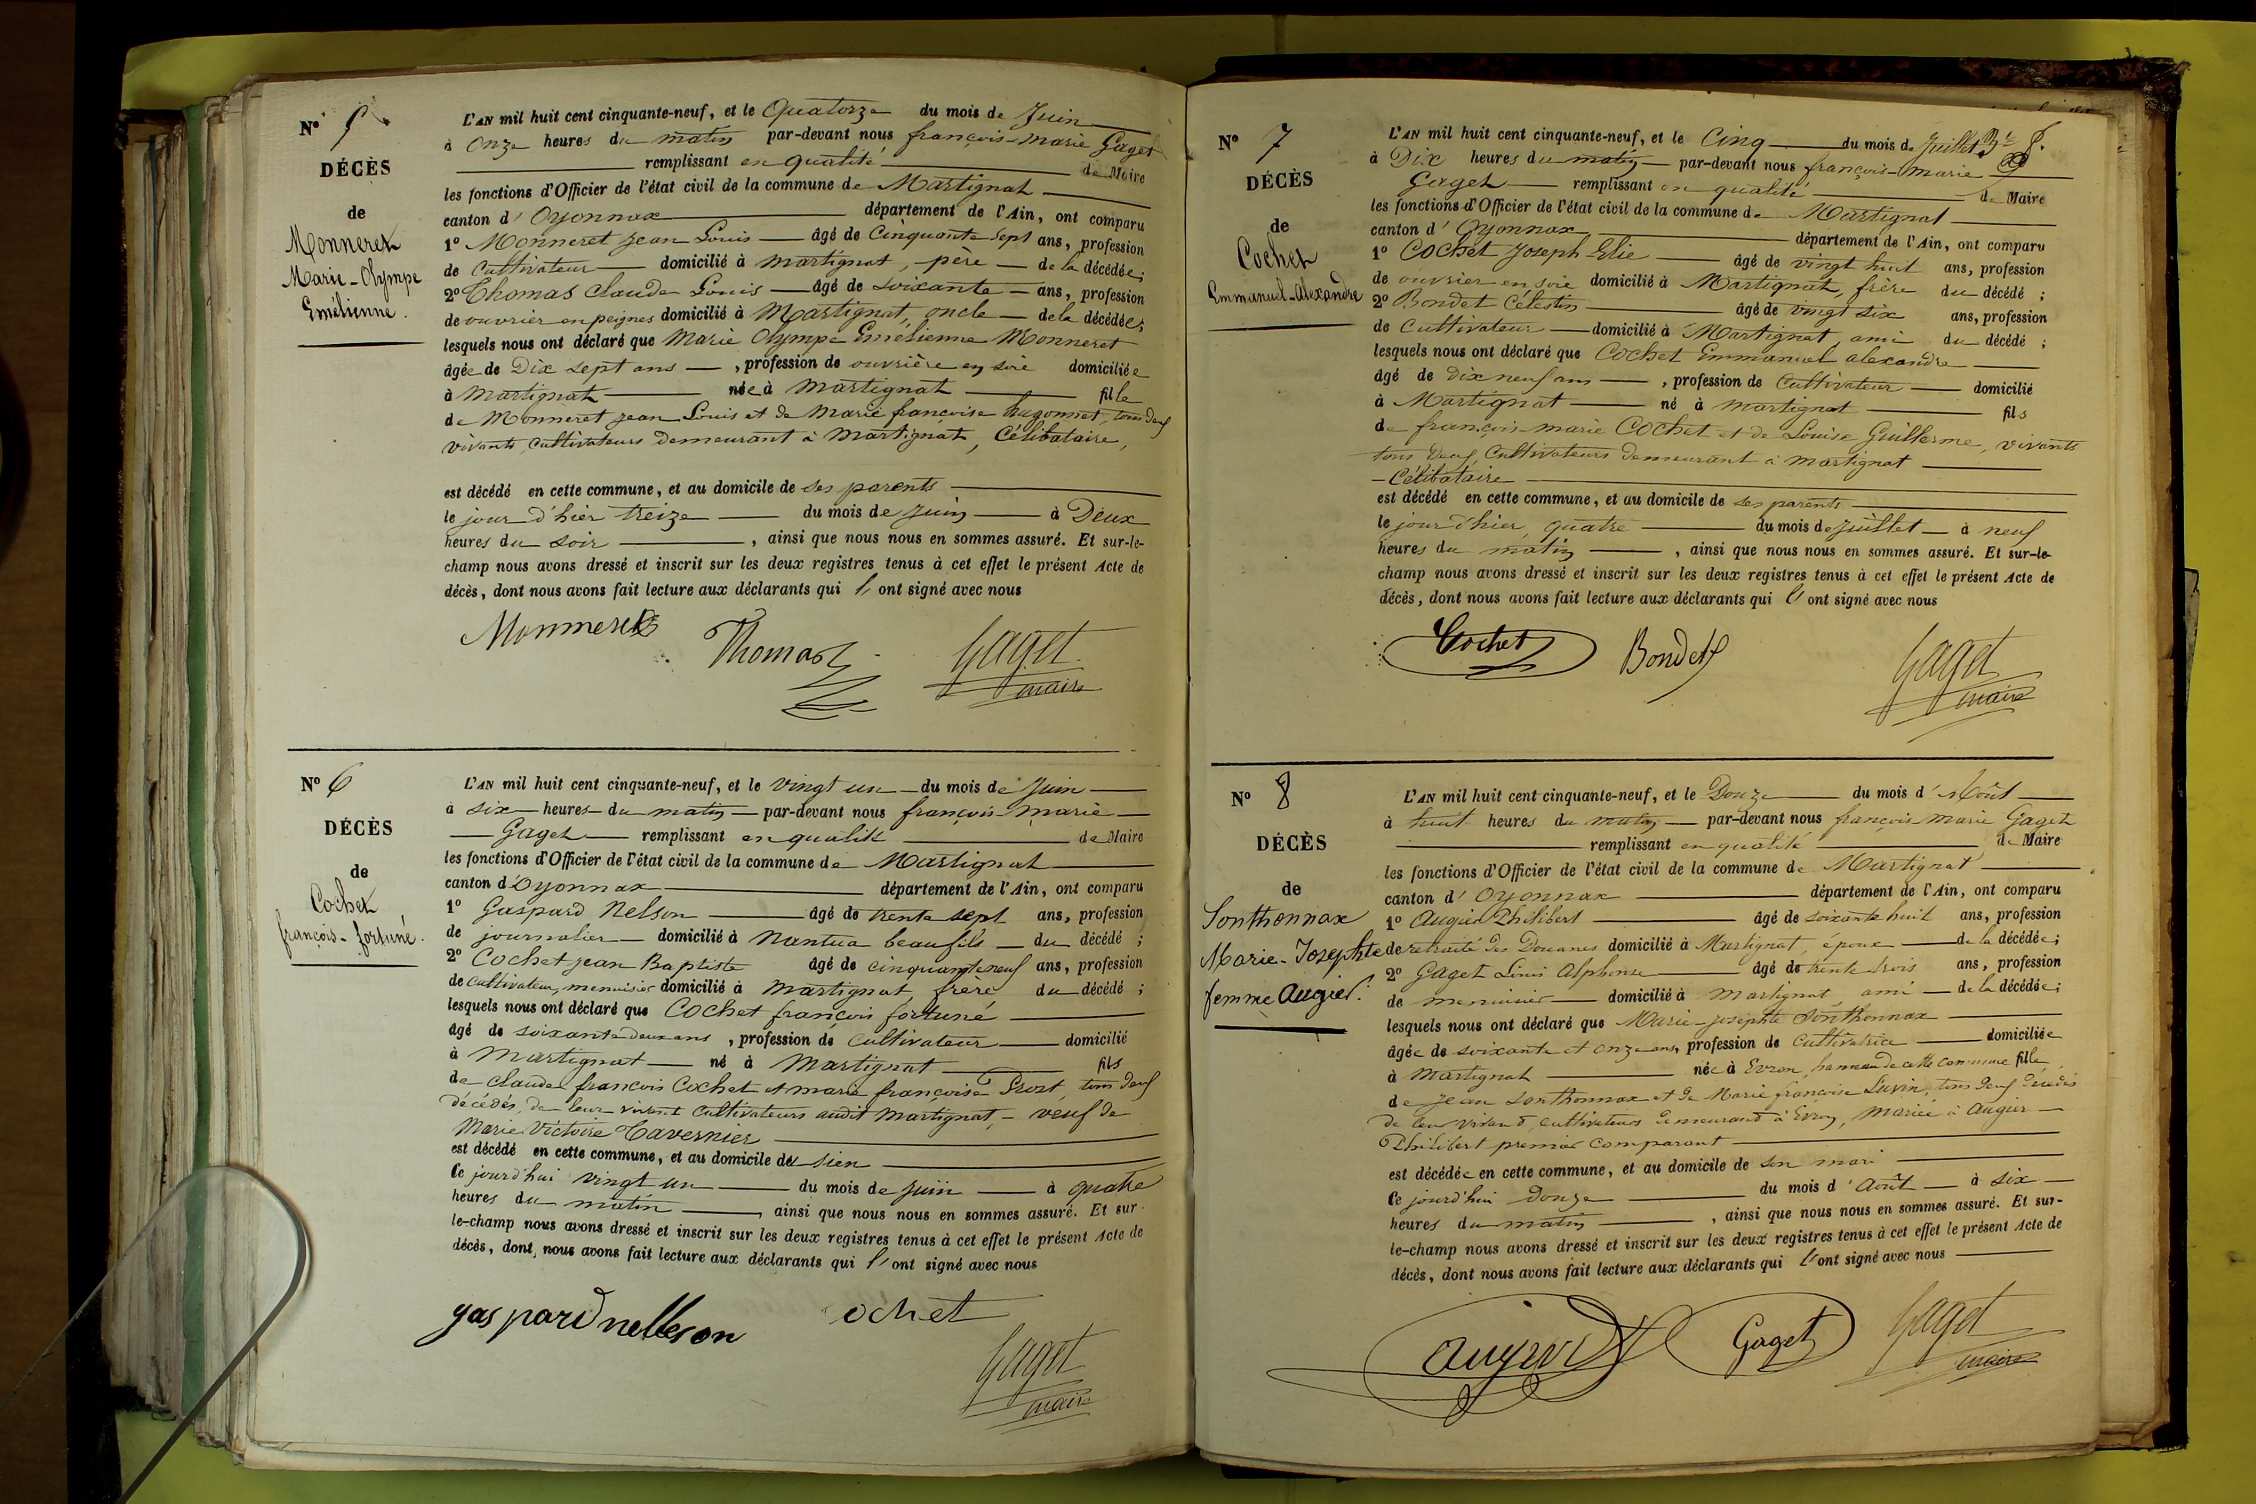 N° 5
DÉCÈS
de
Monneret
Marie-Olympe
Emélienne.
L'AN mil huit cent cinquante-neuf, et le Quatorze du mois de Juin
à onze heures du matin par-devant nous françois-marie Gaget
remplissant en qualité de Maire
les fonctions d'Officier de l'état civil de la commune de Martignat
canton d'Oyonnax département de l'Ain, ont comparu
1° Monneret Jean Louis âgé de Cinquante Sept ans, profession
de Cultivateur domicilié à Martignat, père de la décédée;
2° Thomas Claude Louis âgé de soixante ans, profession
de ouvrier en peignes domicilié à Martignat, oncle de la décédée;
lesquels nous ont déclaré que Marie Olympe Emélienne Monneret
âgée de Dix sept ans, profession de ouvrière en soie domiciliée
à Martignat née à Martignat fille
de Monneret Jean Louis et de Marie françoise hugonnet, tous deux
vivants, cultivateurs demeurant à Martignat, Célibataire,
est décédé en cette commune, et au domicile de ses parents
le jour d'hier treize du mois de Juin à Deux
heures du soir, ainsi que nous nous en sommes assuré. Et sur-le-
champ nous avons dressé et inscrit sur les deux registres tenus à cet effet le présent Acte de
décès, dont nous avons fait lecture aux déclarants qui l'ont signé avec nous
Monneret Thomas Gaget
maire
N° 6
DÉCÈS
de
Cochet
françois-fortuné.
L'AN mil huit cent cinquante-neuf, et le vingt un du mois de Juin
à six heures du matin par-devant nous françois marie
Gaget remplissant en qualité de Maire
les fonctions d'Officier de l'état civil de la commune de Martignat
canton d'Oyonnax département de l'Ain, ont comparu
1° Gaspard Nelson âgé de trente sept ans, profession
de journalier domicilié à Nantua beau fils du décédé;
2° Cochet Jean Baptiste âgé de cinquante neuf ans, profession
de cultivateur, menuisier domicilié à Martignat, frère du décédé;
lesquels nous ont déclaré que Cochet françois fortuné
âgé de soixante deux ans, profession de Cultivateur domicilié
à Martignat né à Martignat fils
de claude françois Cochet et marie françoise Prost, tous deux
décédés, de leur vivant cultivateurs audit Martignat, veuf de
Marie Victoire Tavernier
est décédé en cette commune, et au domicile de sien
Ce jourd'hui vingt un du mois de Juin à quatre
heures du matin, ainsi que nous nous en sommes assuré. Et sur-
le-champ nous avons dressé et inscrit sur les deux registres tenus à cet effet le présent Acte de
décès, dont nous avons fait lecture aux déclarants qui l'ont signé avec nous
gaspard nelleson ochet
Gaget
maire
N° 7
DÉCÈS
de
Cochet
Emmanuel-Alexandre
L'AN mil huit cent cinquante-neuf, et le Cinq du mois de Juillet
à Dix heures du matin par-devant nous françois-marie
Gaget remplissant en qualité de Maire
les fonctions d'Officier de l'état civil de la commune de Martignat
canton d'Oyonnax département de l'Ain, ont comparu
1° Cochet Joseph Elie âgé de vingt huit ans, profession
de ouvrier en soie domicilié à Martignat, frère du décédé;
2° Bondet Célestin âgé de vingt six ans, profession
de Cultivateur domicilié à Martignat, ami du décédé;
lesquels nous ont déclaré que Cochet Emmanuel alexandre
âgé de dix neuf ans, profession de Cultivateur domicilié
à Martignat né à Martignat fils
de françois-marie Cochet et de Louise Guillerme, vivants
tous deux, Cultivateurs demeurant à Martignat
Célibataire
est décédé en cette commune, et au domicile de ses parents
le jour d'hier quatre du mois de Juillet à neuf
heures du matin, ainsi que nous nous en sommes assuré. Et sur-le-
champ nous avons dressé et inscrit sur les deux registres tenus à cet effet le présent Acte de
décès, dont nous avons fait lecture aux déclarants qui l'ont signé avec nous
Cochet Bondet Gaget
maire
N° 8
DÉCÈS
de
Sonthonnax
Marie-Josephte
femme Augier.
L'AN mil huit cent cinquante-neuf, et le Douze du mois d'Août
à huit heures du matin par-devant nous françois marie Gaget
remplissant en qualité de Maire
les fonctions d'Officier de l'état civil de la commune de Martignat
canton d'Oyonnax département de l'Ain, ont comparu
1° Augier Philibert âgé de soixante huit ans, profession
de retraité des Douanes domicilié à Martignat, époux de la décédée;
2° Gaget Louis Alphonse âgé de trente trois ans, profession
de menuisier domicilié à Martignat, ami de la décédée;
lesquels nous ont déclaré que Marie-Josephte Sonthonnax
âgée de soixante et onze ans, profession de Cultivatrice domiciliée
à Martignat née à Evron, hameau de cette commune fille
de Jean Sonthonnax et de Marie françoise Luvin, tous deux décédés
de leur vivant, cultivateurs demeurant à Evron, Mariée à Augier
Philibert premier comparant
est décédée en cette commune, et au domicile de son mari
Ce jourd'hui douze du mois d'Août à six
heures du matin, ainsi que nous nous en sommes assuré. Et sur-
le-champ nous avons dressé et inscrit sur les deux registres tenus à cet effet le présent Acte de
décès, dont nous avons fait lecture aux déclarants qui l'ont signé avec nous
Augier Gaget Gaget
maire